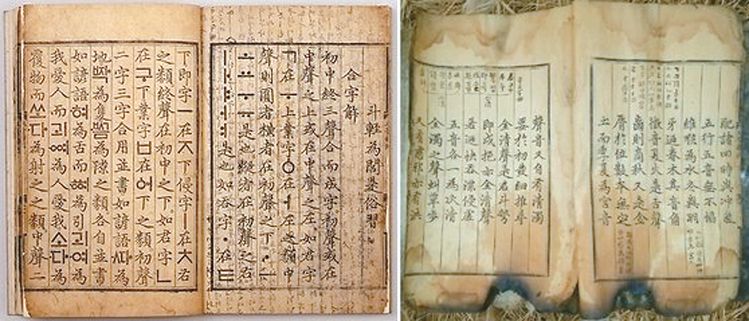 斗輕為閭是俗習
合字解
初中終三聲合而成字初聲或在
中聲之上或在中聲之左如君字
ㄱ在ㅜ上業字ㆁ在ㅓ左之類中
聲則圓者橫者在初聲之下ㆍㅡ
ㅗㅛㅜㅠ是也縱者在初聲之右
ㅣㅏㅑㅓㅕ是也如吞字ㆍ在ㅌ
下即字ㅡ在ㅈ下侵字ㅣ在ㅊ右
之類終聲在初中之下如君字ㄴ
在구下業字ㅂ在ᅌᅥ下之類初聲
二字三字合用並書如諺語ᄯᅡ為
地ᄧᅡᆨ為隻ᄢᅳᆷ為隙之類各自並書
如諺語혀為舌而ᅘᅧ為引괴여為
我愛人而괴ᅇᅧ為人愛我소다為
覆物而쏘다為射之之類中聲二
配諸四時與冲氣
五行五音無不協
維喉為水冬與羽
牙迺春木其音角
徵音夏火是舌聲
齒則商秋又是金
脣於位數本無定
土而季夏為宮音
聲音又自有清濁
要於初發細推尋
全清聲是君斗彆
即戌挹亦全清聲
若迺快吞漂侵虛
五音各一為次清
全濁之聲虯覃步
又有慈邪亦有洪